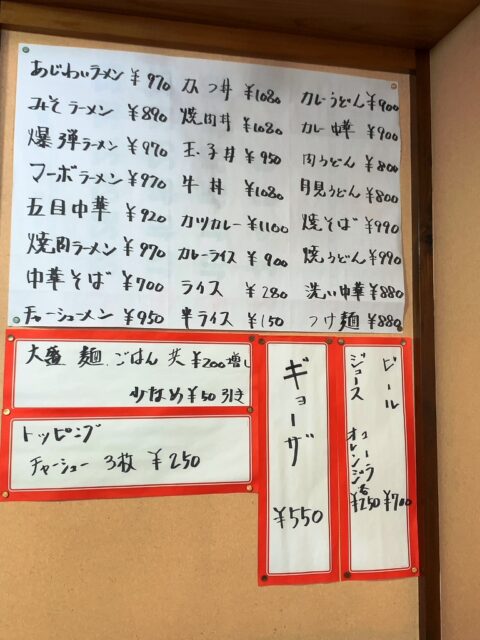 あじわいラーメン ¥970
みそラーメン ¥890
爆弾ラーメン ¥970
マーボラーメン ¥970
五目中華 ¥920
焼肉ラーメン ¥970
中華そば ¥700
チャーシューメン ¥950
カツ丼 ¥1080
焼肉丼 ¥1080
玉子丼 ¥950
牛丼 ¥1080
カツカレー ¥1100
カレーライス ¥900
ライス ¥280
半ライス ¥150
カレーうどん ¥900
カレー中華 ¥900
肉うどん ¥800
月見うどん ¥800
焼そば ¥990
焼うどん ¥990
洗い中華 ¥880
つけ麺 ¥880
大盛 麺、ごはん 共 ¥200増し
少なめ ¥50引き
トッピング
チャーシュー 3枚 ¥250
ギョーザ ¥550
ビール ¥700
ジュース
コーラ
オレンジ
各¥250